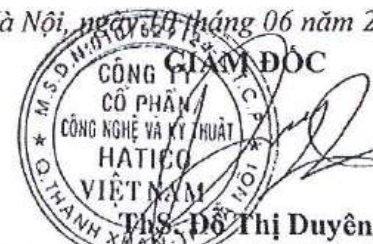 à Nội, ngày 10 tháng 06 năm 2
GIÁM ĐỐC
CÔNG TY
CỔ PHẦN
CÔNG NGHỆ VÀ KỸ THUẬT
HATICO
VIỆT NAM
Q. THANH XUÂN
ThS. Đỗ Thị Duyên